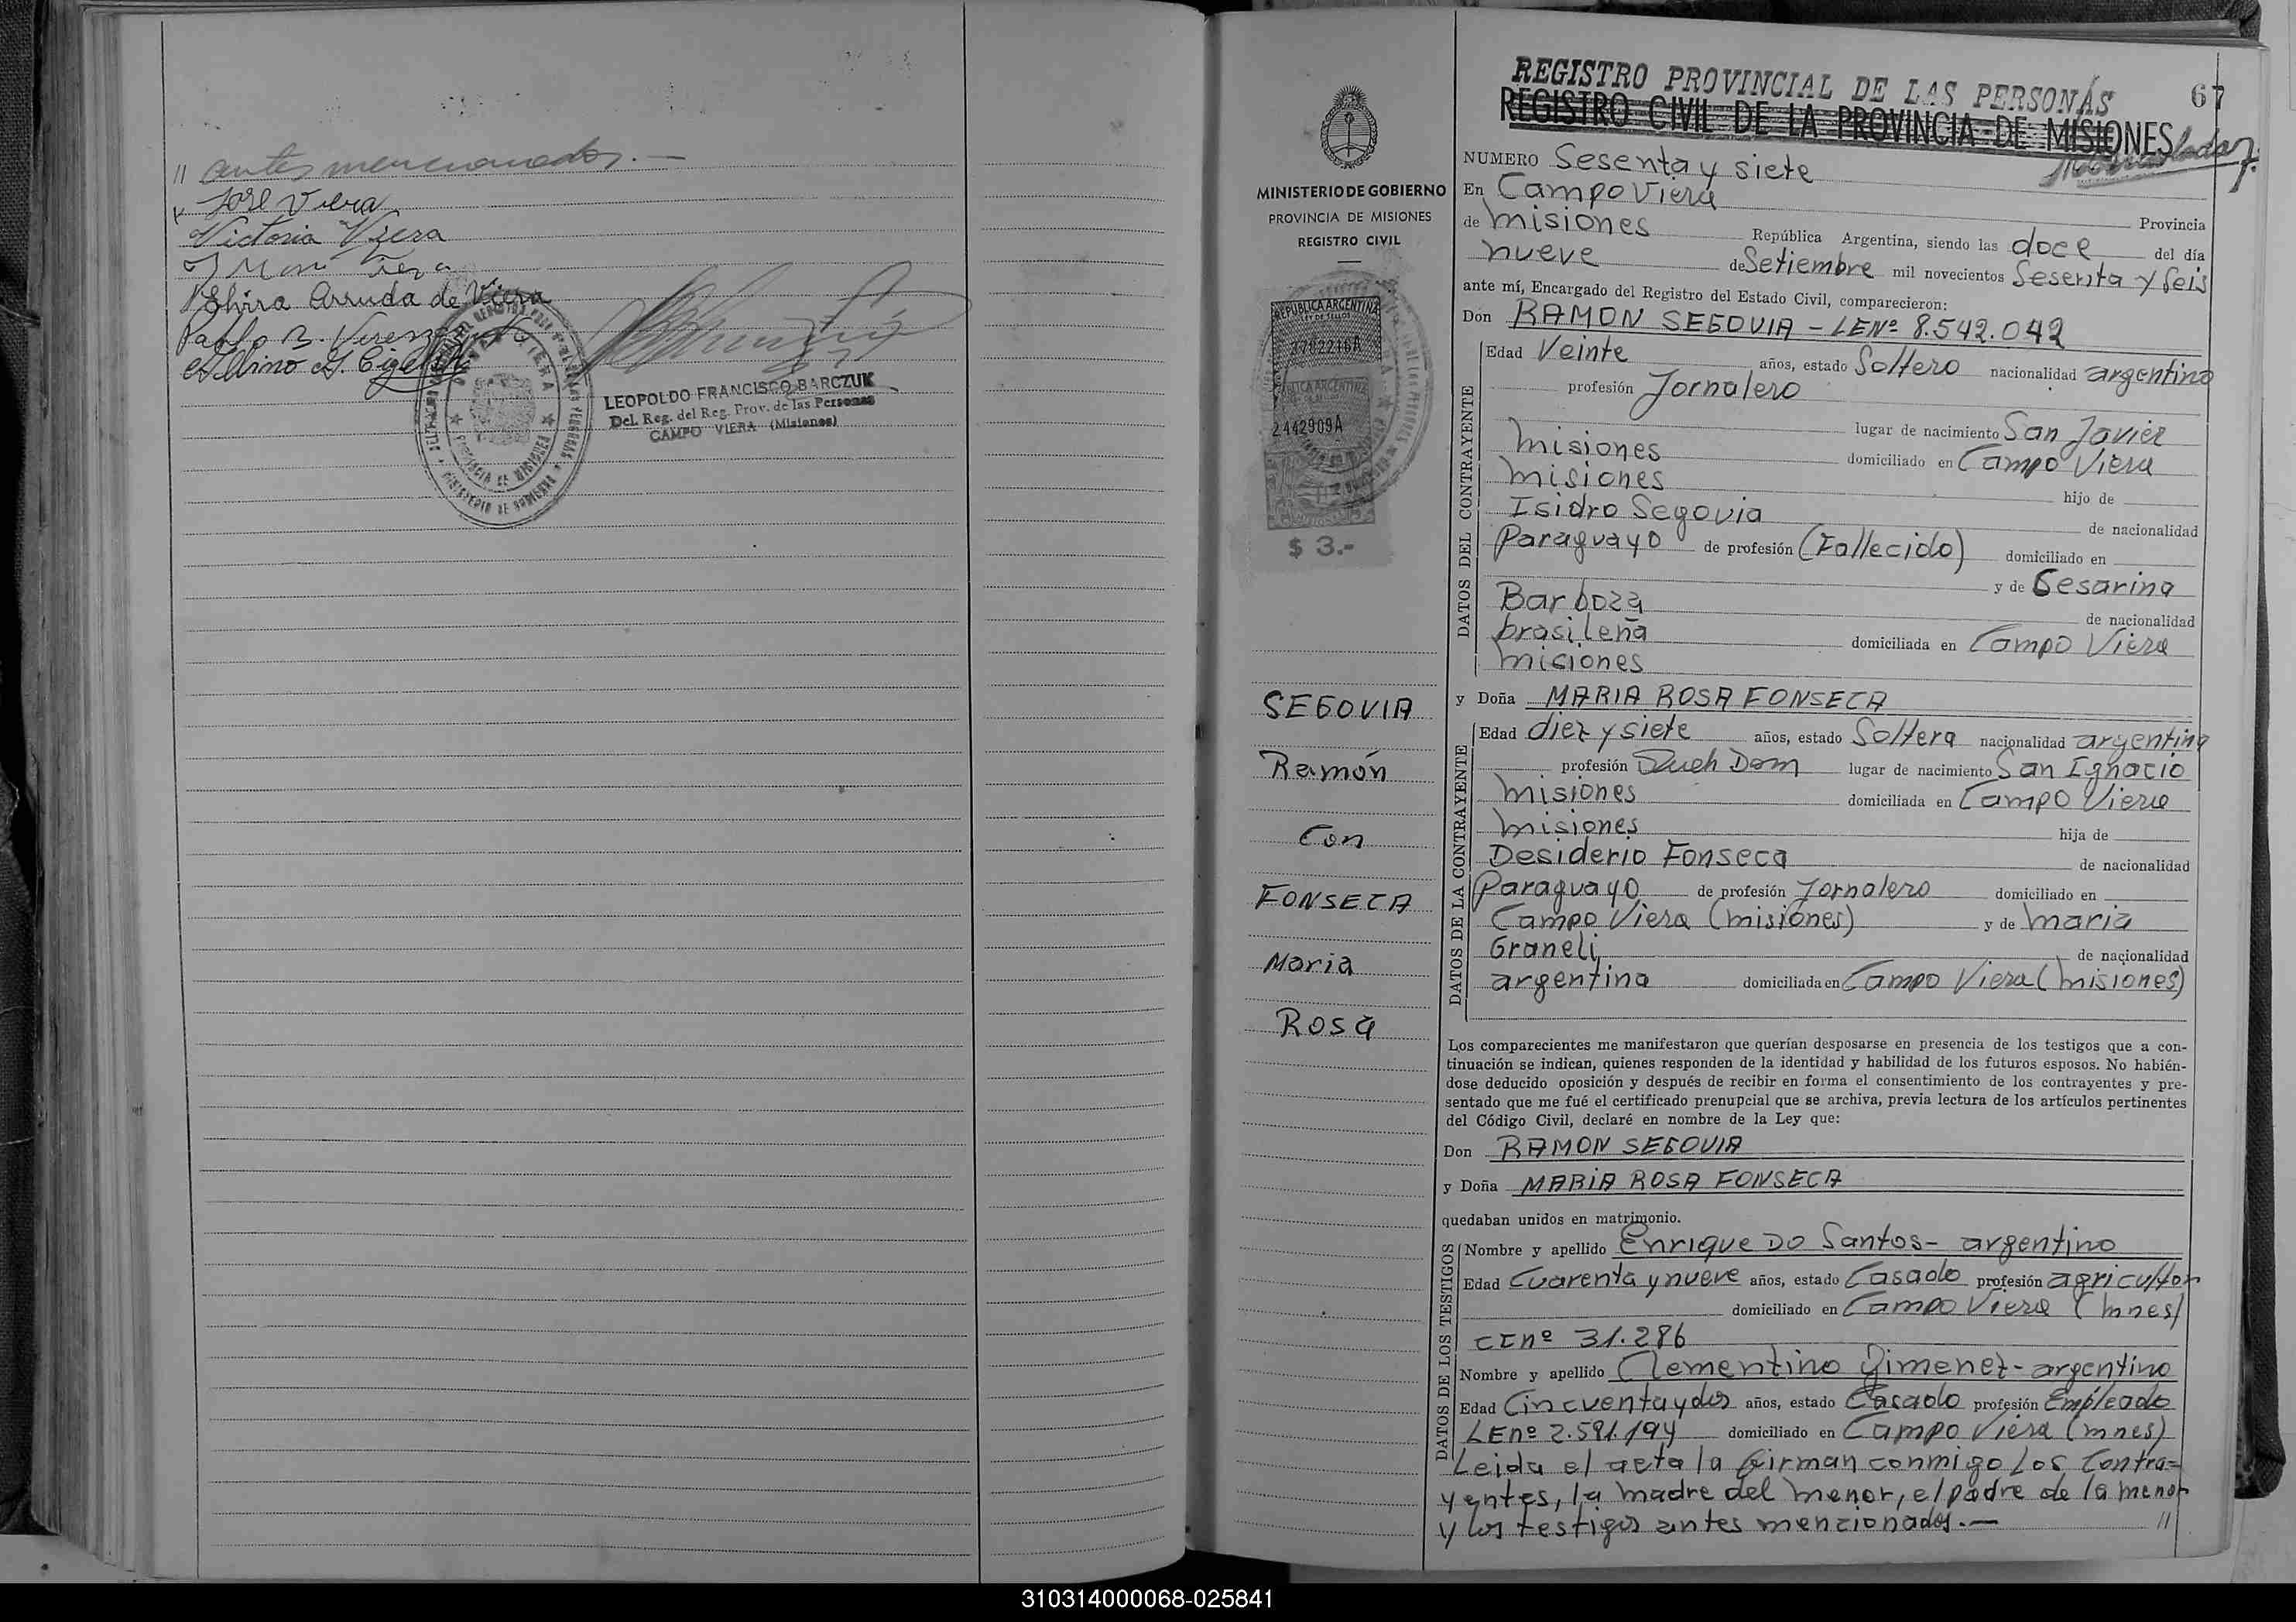 // antes mencionados.—
José Viera
Victoria Viera
Elvira Arruda de Viera
Pablo B.
LEOPOLDO FRANCISCO BARCZUK
Del. Reg. del Reg. Prov. de las Personas
CAMPO VIERA (Misiones)
REGISTRO PROVINCIAL DE LAS PERSONAS
67
REGISTRO CIVIL DE LA PROVINCIA DE MISIONES
MINISTERIO DE GOBIERNO
PROVINCIA DE MISIONES
REGISTRO CIVIL
REPUBLICA ARGENTINA
2442909A
$ 3.-
SEGOVIA
Ramón
Con
FONSECA
Maria
Rosa
NUMERO Sesenta y siete
En Campo Viera
Provincia
de Misiones República Argentina, siendo las doce del día
nueve de Setiembre mil novecientos Sesenta y Seis
ante mí, Encargado del Registro del Estado Civil, comparecieron:
Don RAMON SEGOVIA - LENº 8.542.042
DATOS DEL CONTRAYENTE
Edad Veinte años, estado Soltero nacionalidad argentino
profesión Jornalero
lugar de nacimiento San Javier
Misiones domiciliado en Campo Viera
Misiones hijo de
Isidro Segovia de nacionalidad
Paraguayo de profesión (Fallecido) domiciliado en
y de Cesarina
Barboza de nacionalidad
brasileña domiciliada en Campo Viera
Misiones
y Doña MARIA ROSA FONSECA
DATOS DE LA CONTRAYENTE
Edad diez y siete años, estado Soltera nacionalidad argentina
profesión Queh Dom lugar de nacimiento San Ignacio
Misiones domiciliada en Campo Viera
Misiones hija de
Desiderio Fonseca de nacionalidad
Paraguayo de profesión Jornalero domiciliado en
Campo Viera (Misiones) y de Maria
Graneli de nacionalidad
argentina domiciliada en Campo Viera (Misiones)
Los comparecientes me manifestaron que querían desposarse en presencia de los testigos que a con-
tinuación se indican, quienes responden de la identidad y habilidad de los futuros esposos. No habién-
dose deducido oposición y después de recibir en forma el consentimiento de los contrayentes y pre-
sentado que me fué el certificado prenupcial que se archiva, previa lectura de los artículos pertinentes
del Código Civil, declaré en nombre de la Ley que:
Don RAMON SEGOVIA
y Doña MARIA ROSA FONSECA
quedaban unidos en matrimonio.
DATOS DE LOS TESTIGOS
Nombre y apellido Enrique Do Santos - argentino
Edad Cuarenta y nueve años, estado Casado profesión agricultor
domiciliado en Campo Viera (Mnes)
CI nº 31.286
Nombre y apellido Clementino Gimenez - argentino
Edad Cincuenta y dos años, estado Casado profesión Empleado
LE nº 2.591.194 domiciliado en Campo Viera (Mnes)
Leida el acta la firman conmigo los Contra=
yentes, la madre del menor, el padre de la menor
y los testigos antes mencionados.— //
310314000068-025841